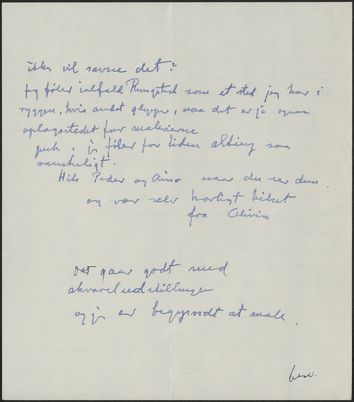 ikke vil savne det?
Jeg føler ialfald Rungsted som et sted jeg har i
ryggen, hvis andet glipper, naa det er jo ogsaa
oplagsstedet for malerierne
puh, jeg føler for tiden alting saa
vanskeligt.
Hils Peder og Aino naar du ser dem.
og vær selv kærligt hilset
fra Olivia
Det gaar godt med
akvareludstillingen
og jeg er begyndt at male.